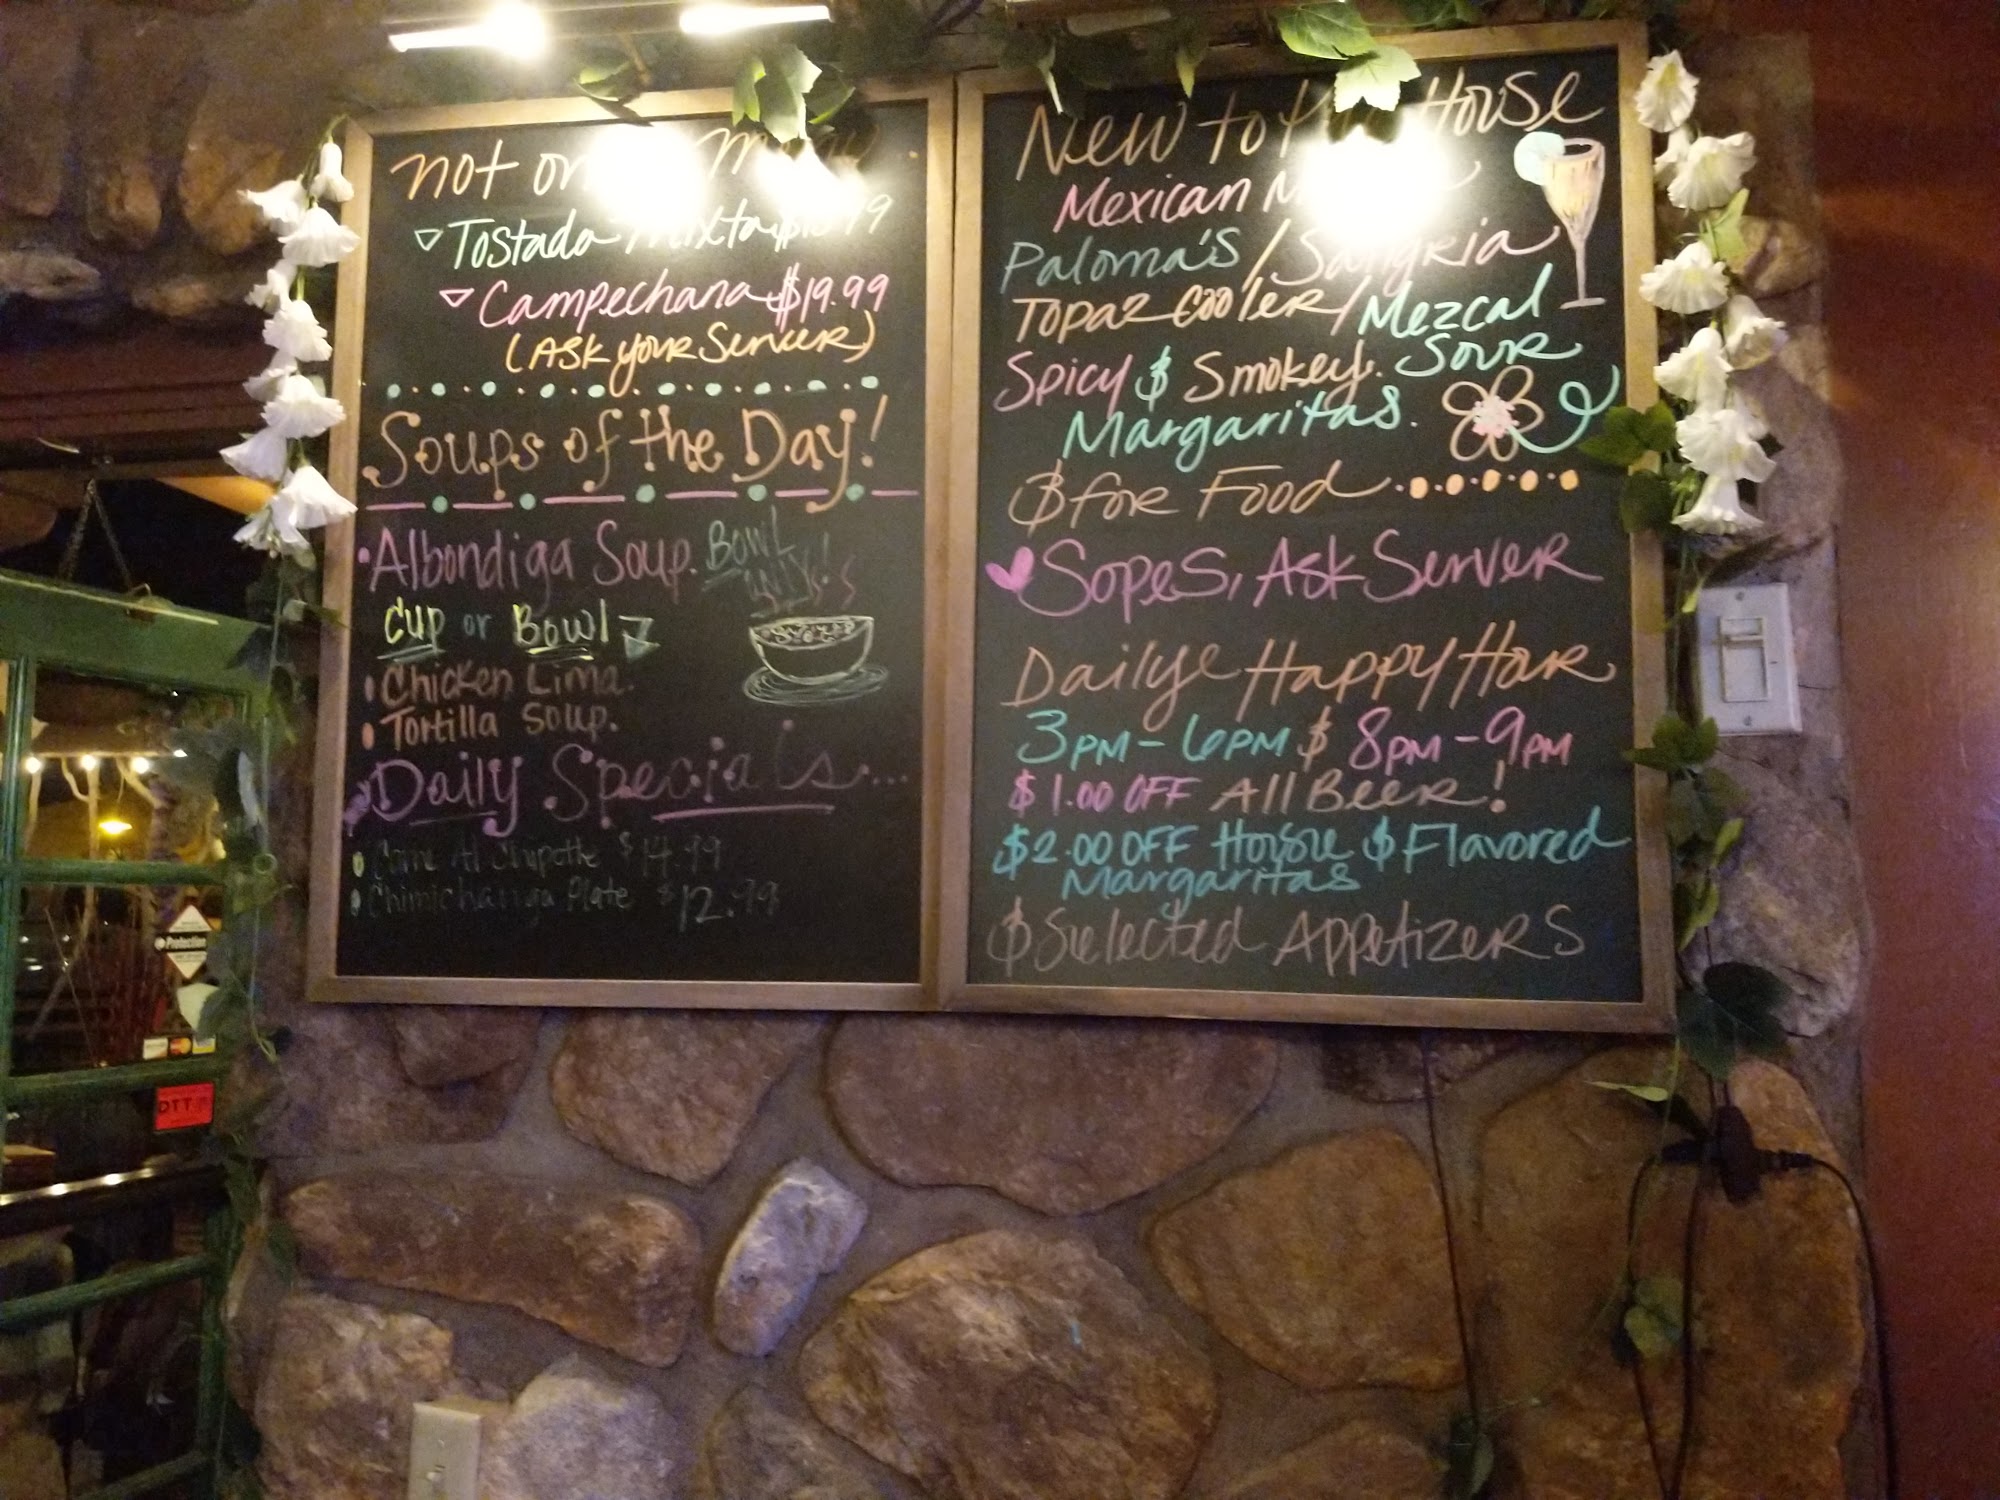 not on
Tostada Mixta
Campechana $19.99
(Ask your Server)
Soups of the Day!
Albondiga Soup. Bowl only!
Cup or Bowl
Chicken Lima.
Tortilla Soup.
Daily Specials...
Carne Al Chipotle $14.99
Chimichanga Plate $12.99
New to the House
Mexican
Paloma's / Sangria
Topaz Cooler / Mezcal Sour
Spicy & Smokey.
Margaritas.
& for Food
Sopes, Ask Server
Daily Happy Hour
3pm - 6pm & 8pm - 9pm
$1.00 OFF All Beer!
$2.00 OFF House & Flavored
Margaritas
& Selected Appetizers
Protection
DTT